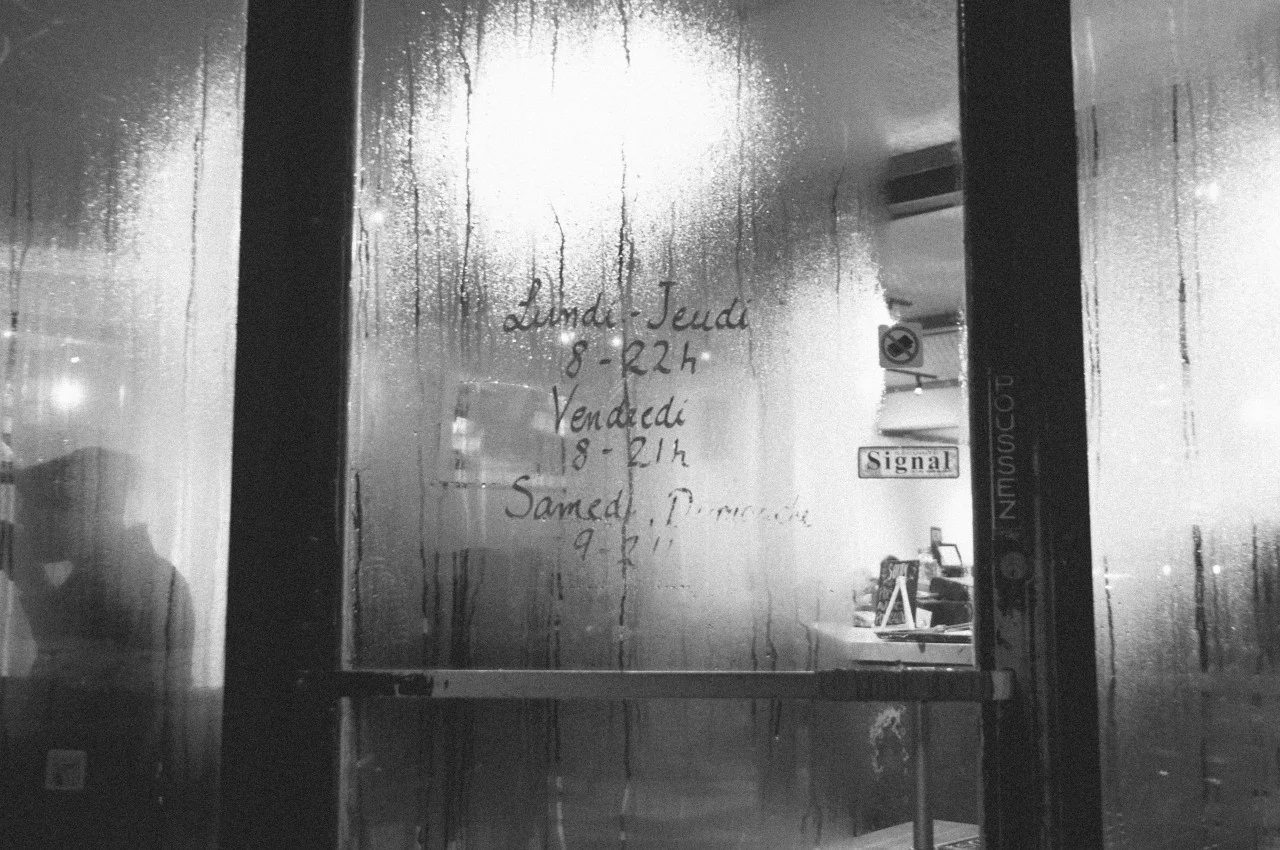 Lundi-Jeudi
8-22h
Vendredi
8-21h
Samedi, Dimanche
9-21
Signal
POUSSEZ